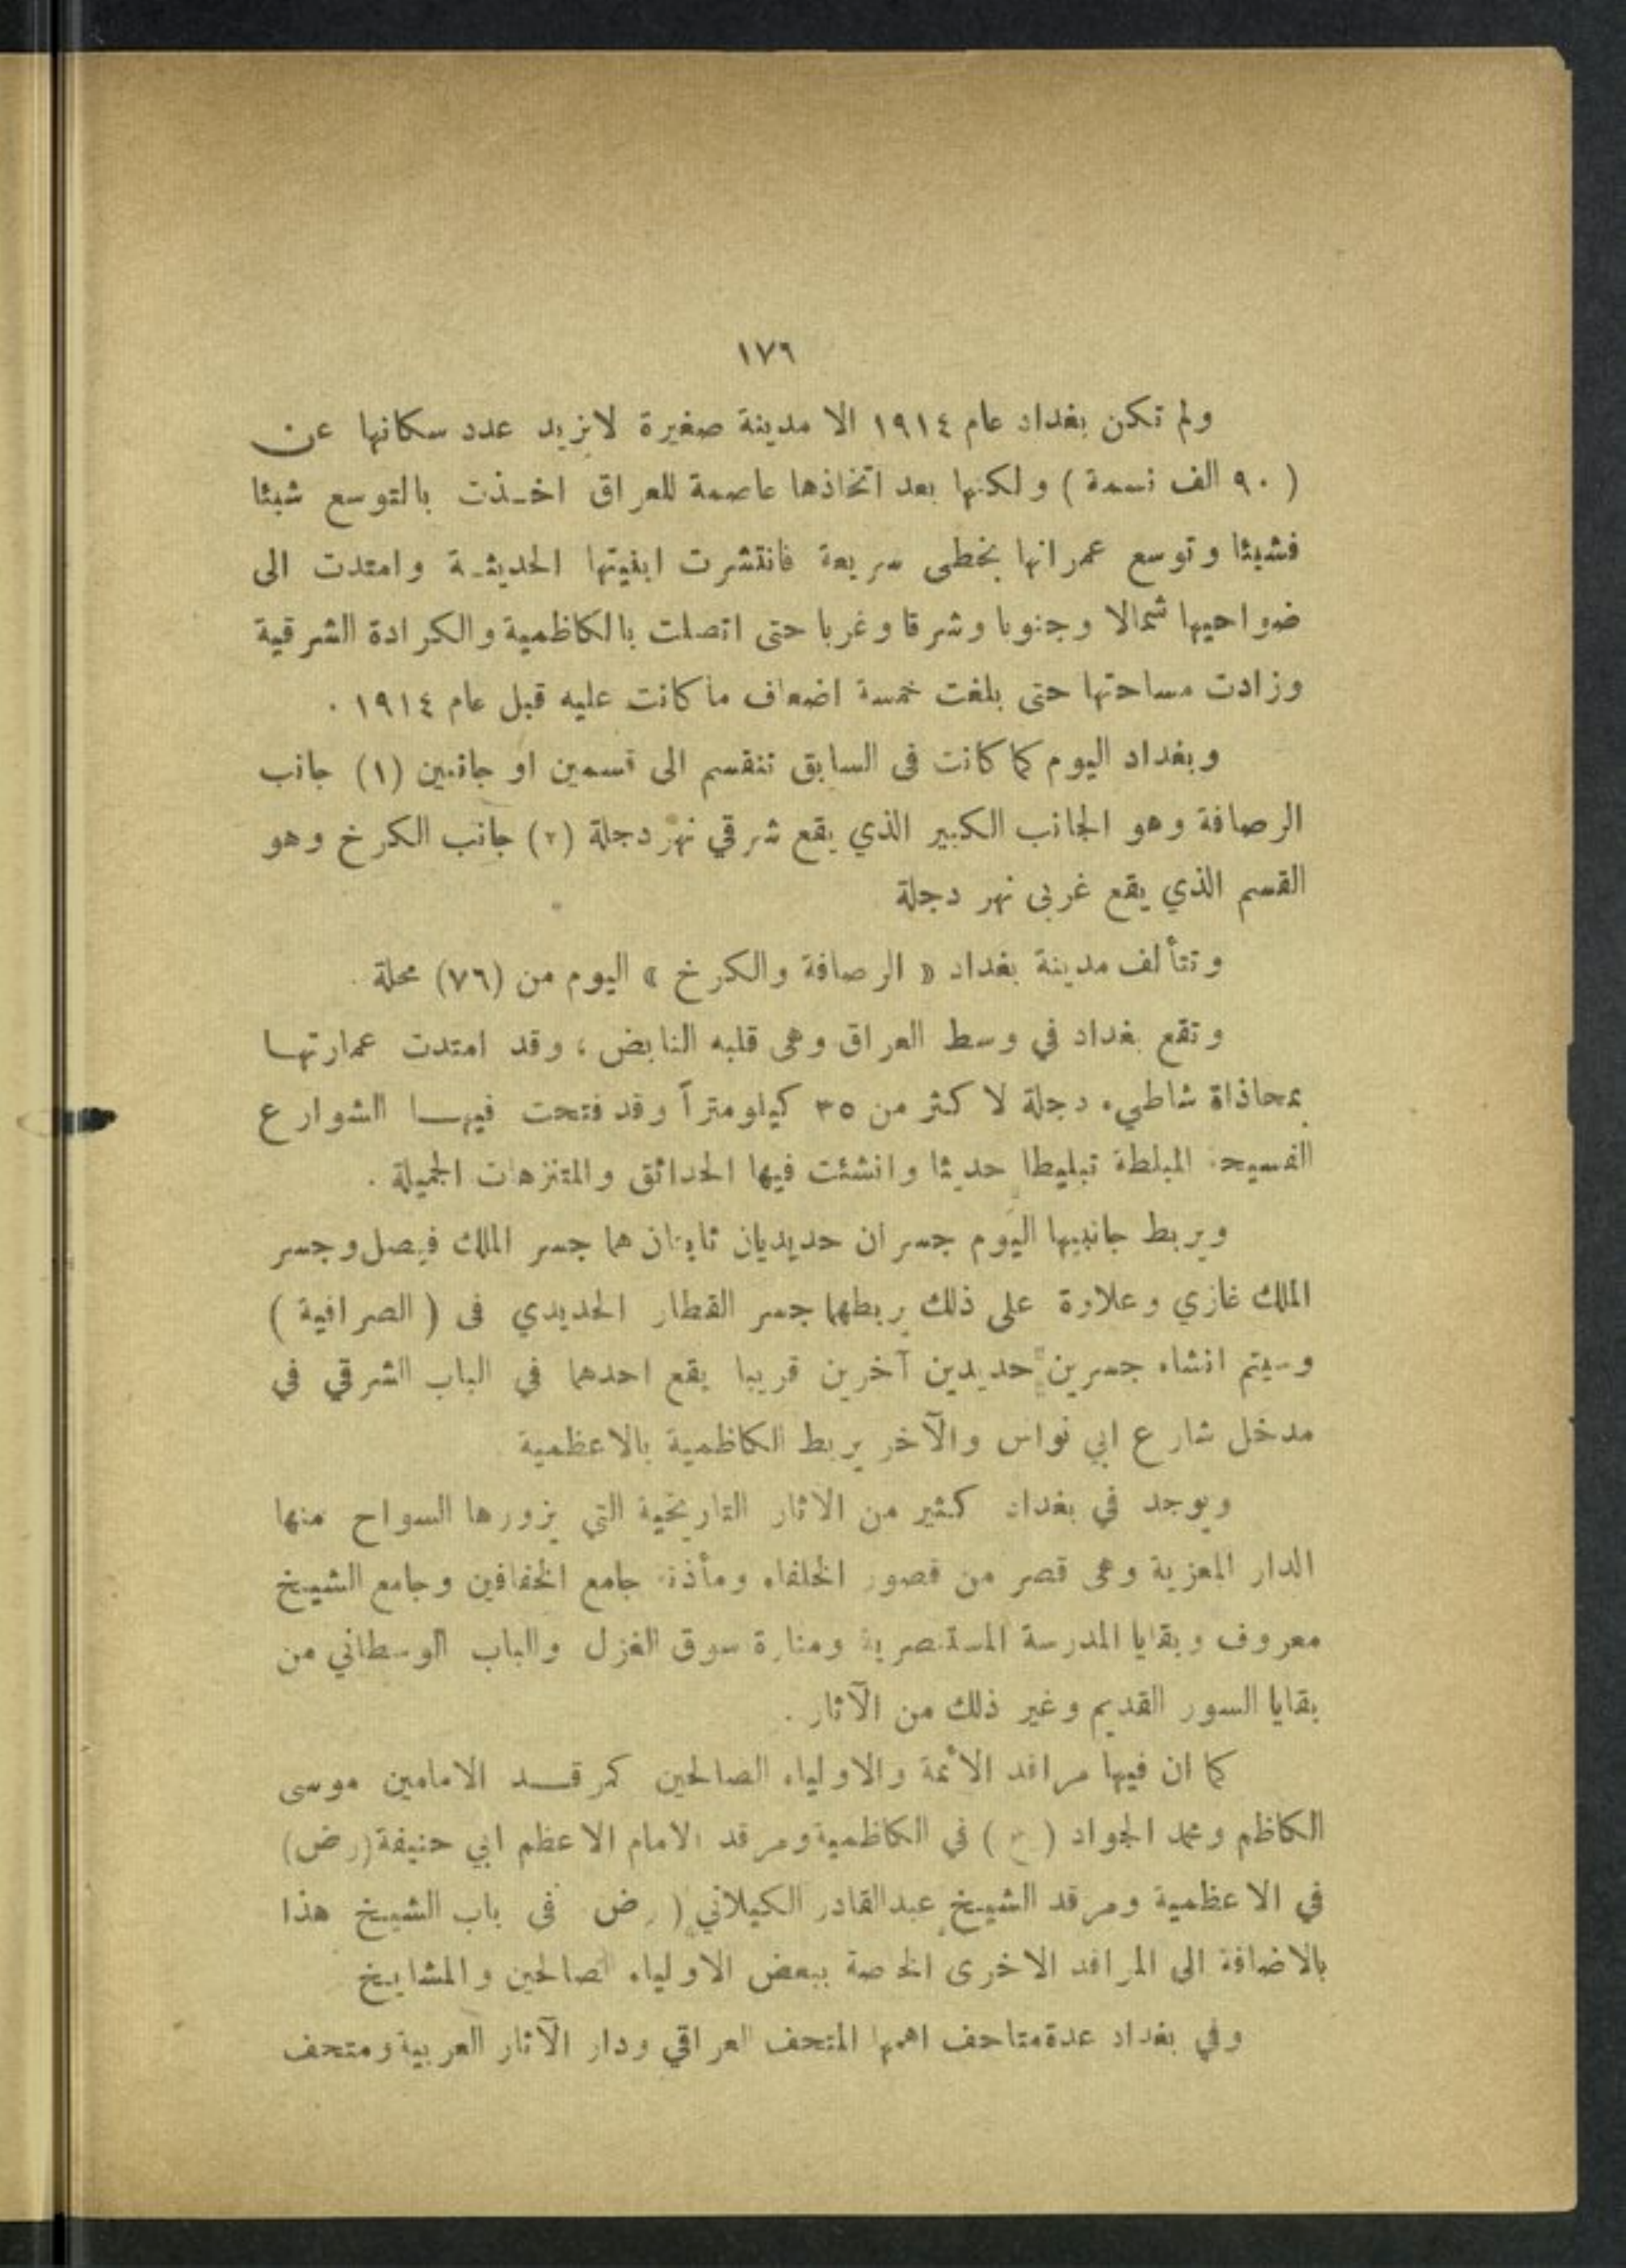 ١٧٦
ولم تكن بغداد عام ١٩١٤ الا مدينة صغيرة لاتزيد عدد سكانها عن
( ٩٠ الف نسمة ) ولكنها بعد اتخاذها عاصمة للعراق اخـذت بالتوسع شيئا
فشيئا وتوسع عمرانها بخطى سريعة فانتشرت ابنيتها الحديثـة وامتدت الى
ضواحيها شمالا وجنوبا وشرقا وغربا حتى اتصلت بالكاظمية والكرادة الشرقية
وزادت مساحتها حتى بلغت خمسة اضعاف ماكانت عليه قبل عام ١٩١٤ .
وبغداد اليوم كما كانت فى السابق تنقسم الى قسمين او جانبين (١) جانب
الرصافة وهو الجانب الكبير الذي يقع شرقي نهر دجلة (٢) جانب الكرخ وهو
القسم الذي يقع غربى نهر دجلة
وتتألف مدينة بغداد « الرصافة والكرخ » اليوم من (٧٦) محلة .
وتقع بغداد في وسط العراق وهى قلبه النابض ، وقد امتدت عمارتهـا
بمحاذاة شاطيء دجلة لاكثر من ٣٥ كيلومتراً وقد فتحت فيهـا الشوارع
الفسيحة المبلطة تبليطا حديثا وانشئت فيها الحدائق والمتنزهات الجميلة .
ويربط جانبيها اليوم جسران حديديان ثابتان هما جسر الملك فيصل وجسر
الملك غازي وعلاوة على ذلك يربطهما جسر القطار الحديدي فى ( الصرافية )
وسيتم انشاء جسرين حديدين آخرين قريبا يقع احدهما في الباب الشرقي في
مدخل شارع ابي نواس والآخر يربط الكاظمية بالاعظمية
ويوجد في بغداد كثير من الاثار التاريخية التي يزورها السواح منها
الدار المعزية وهى قصر من قصور الخلفاء ومأذنة جامع الخفافين وجامع الشيخ
معروف وبقايا المدرسة المستنصرية ومنارة سوق الغزل والباب الوسطاني من
بقايا السور القديم وغير ذلك من الآثار .
كما ان فيها مراقد الأئمة والاولياء الصالحين كمرقـد الامامين موسى
الكاظم ومحمد الجواد ( ع ) في الكاظمية ومرقد الامام الاعظم ابي حنيفة (رض)
في الاعظمية ومرقد الشيخ عبدالقادر الكيلاني ( رض فى باب الشيخ هذا
بالاضافة الى المراقد الاخرى الخاصة ببعض الاولياء الصالحين والمشايخ
وفي بغداد عدة متاحف اهمها المتحف العراقي ودار الآثار العربية ومتحف